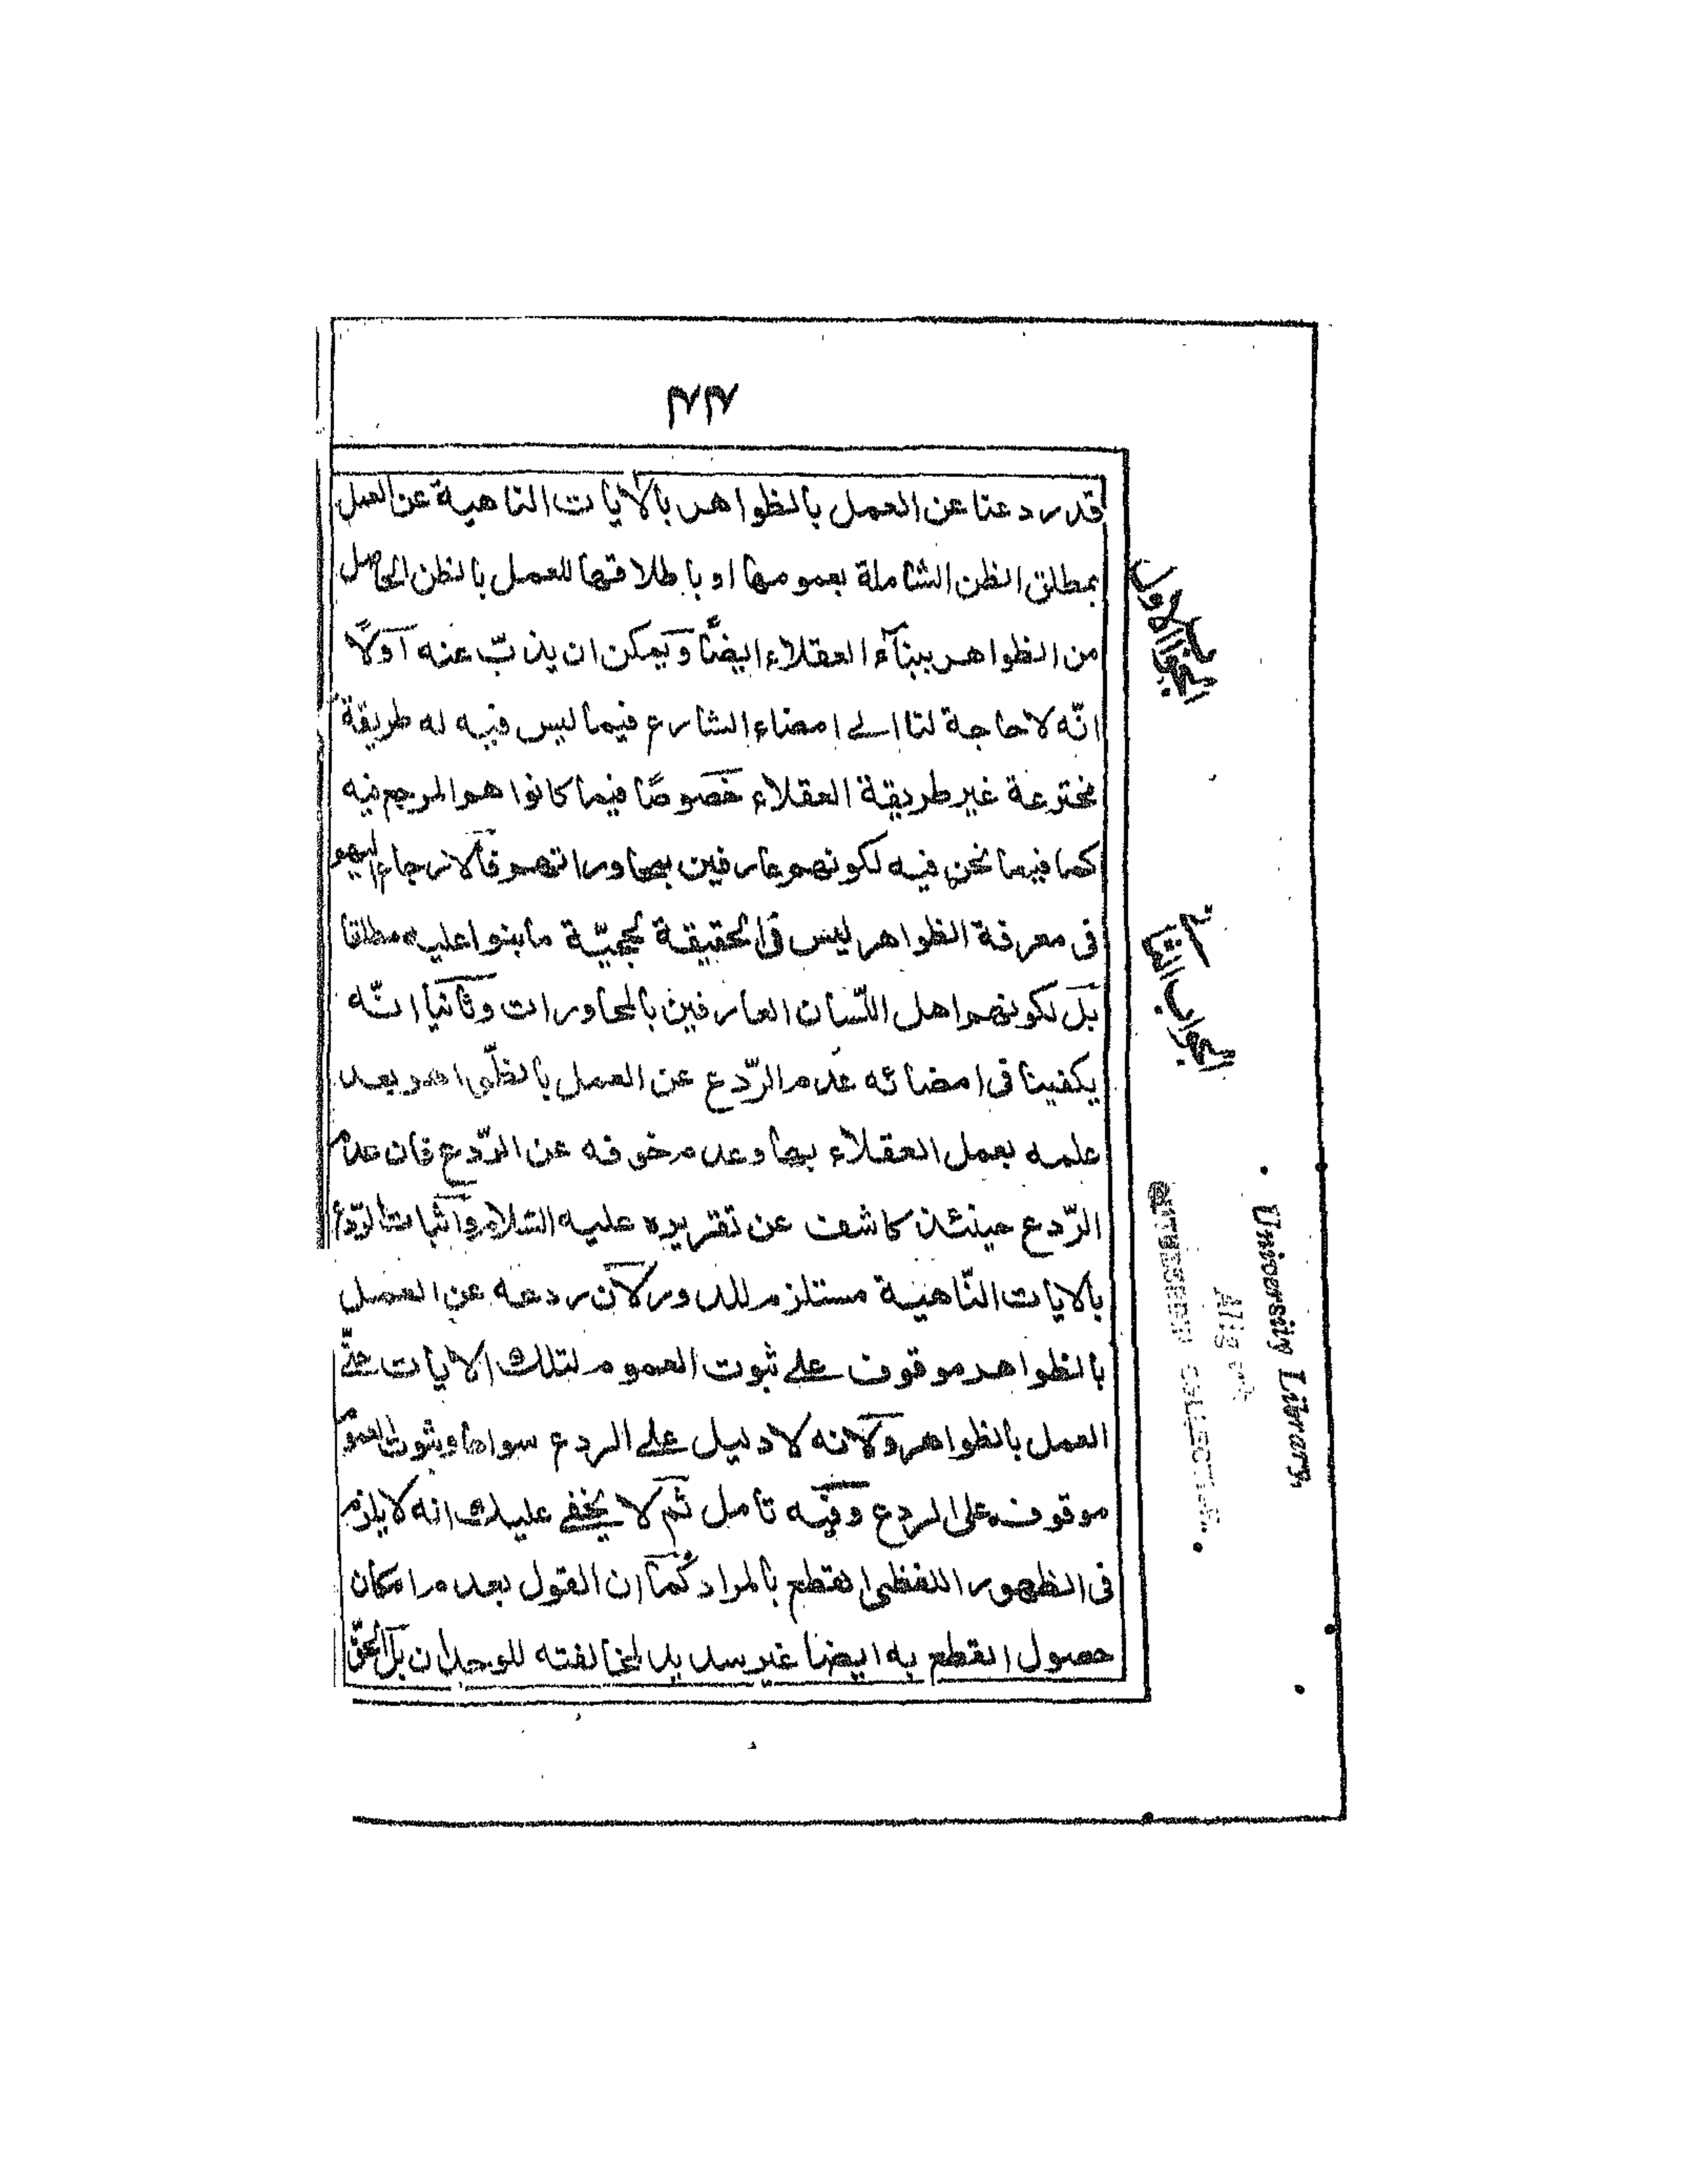 ۴۴
قد ردعنا عن العمل بالظواهر بالآيات الناهية عن العمل
بمطلق الظن الشاملة بعمومها او باطلاقها للعمل بالظن الحاصل
من الظواهر ببناء العقلاء ايضًا ويمكن ان يذبّ عنه اولًا
انّه لا حاجة لنا الى امضاء الشارع فيما ليس فيه له طريقة
مخترعة غير طريقة العقلاء خصوصًا فيما كانوا هم المرجع فيه
كما فيما نحن فيه لكونهم عارفين بمحاوراتهم فالارجاع اليهم
فى معرفة الظواهر ليس فى الحقيقة لحجيّة ما بنوا عليه مطلقا
بل لكونهم اهل اللّسان العارفين بالمحاورات وثانيا انّه
يكفينا فى امضائه عدم الرّدع عن العمل بالظّواهر بعد
علمه بعمل العقلاء بها وعدم خوفه عن الرّدع فان عدم
الرّدع حينئذ كاشف عن تقريره عليه السّلام واثبات الرّدع
بالايات النّاهية مستلزم للدور لان ردعه عن العمل
بالظواهر موقوف على ثبوت العموم لتلك الايات حتّى
العمل بالظواهر ولانه لا دليل على الردع سواها وثبوت العموم
موقوف على الردع وفيه تامل ثم لا يخفى عليك انه لا يلزم
فى الظهور اللفظى القطع بالمراد كما ان القول بعدم امكان
حصول القطع به ايضا غير سديد لمخالفته للوجدان بل الحقّ
الجواب الاول
الجواب الثانى
University Library
COLLECTION.